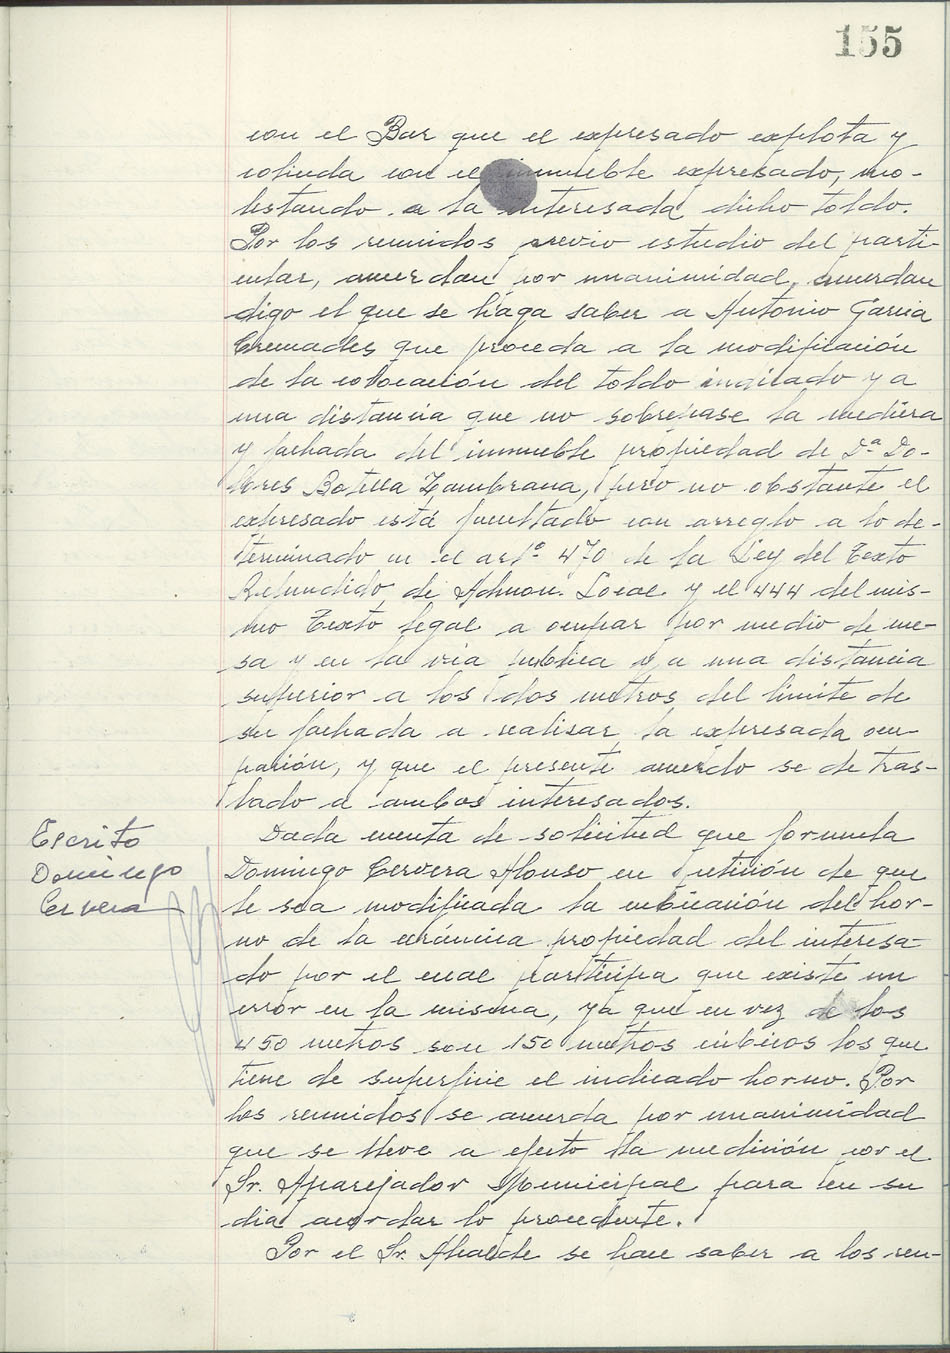 155
con el Bar que el expresado explota y
colinda con el inmueble expresado, mo-
lestando a la interesada dicho toldo.
Por los reunidos previo estudio del parti-
cular, acuerdan por unanimidad, acuerdan
digo el que se haga saber a Antonio Garcia
Cremades que proceda a la modificación
de la colocación del toldo indicado y a
una distancia que no sobrepase la medi­era
y fachada del inmueble propiedad de Dª Do-
lores Botella Zambrana, pero no obstante el
expresado está facultado con arreglo a lo de-
terminado en el artº 470 de la Ley del Texto
Refundido de Admon. Local y el 444 del mis-
mo Texto legal a ocupar por medio de me-
sa y en la via publica y a una distancia
superior a los dos metros del limite de
su fachada a realisar la expresada ocu-
pación, y que el presente acuerdo se de tras-
lado a ambos interesados.
Escrito
Domingo
Cervera
Dada cuenta de solicitud que formula
Domingo Cervera Alonso en petición de que
le sea modificada la ubicación del hor-
no de la cerámica propiedad del interesa-
do por el cual participa que existe un
error en la misma, ya que en vez de los
450 metros son 150 metros cúbicos los que
tiene de superficie el indicado horno. Por
los reunidos se acuerda por unanimidad
que se lleve a efecto la medición por el
Sr. Aparejador Municipal para en su
dia acordar lo procedente.
Por el Sr. Alcalde se hace saber a los reu-